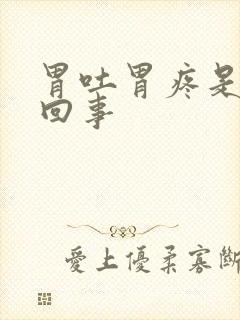 胃吐胃疼是
回事
愛上優柔寡斷